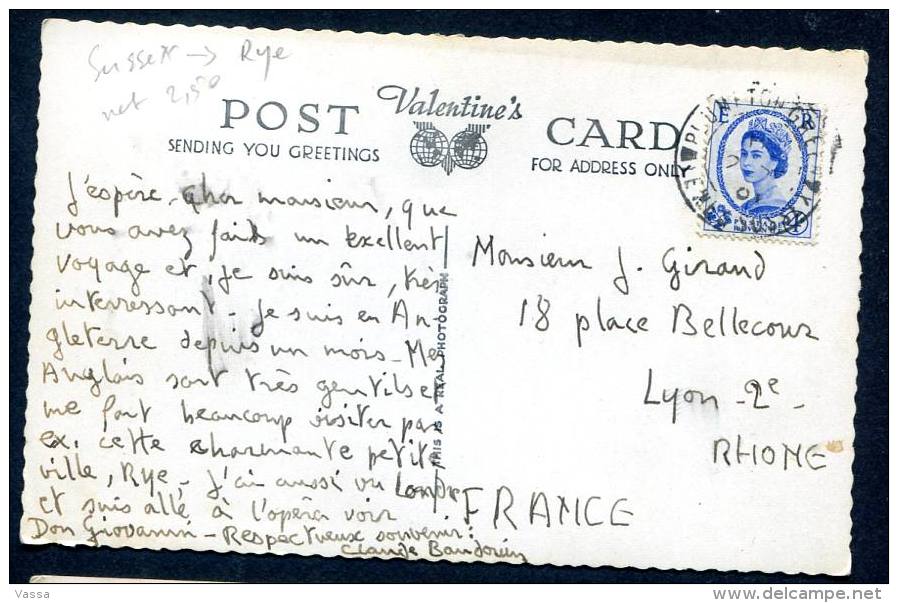 Sussex → Rye
net 2,50
POST Valentine's CARD
SENDING YOU GREETINGS
FOR ADDRESS ONLY
E R
PLUMPTON GREEN
LEWES
J'espère, cher monsieur, que
vous avez fait un excellent
voyage et, je suis sûr, très
interressant - Je suis en An-
gleterre depuis un mois - Mes
Anglais sont très gentils et
me font beaucoup visiter par
ex. cette charmante petite
ville, Rye - J'ai aussi vu Londres
et suis allé à l'opéra voir
Don Giovanni - Respectueux souvenir:
Claude Baudouin
THIS IS A REAL PHOTOGRAPH
Monsieur J. Girand
18 place Bellecour
Lyon - 2e -
RHONE
FRANCE
Vassa
www.delcampe.net